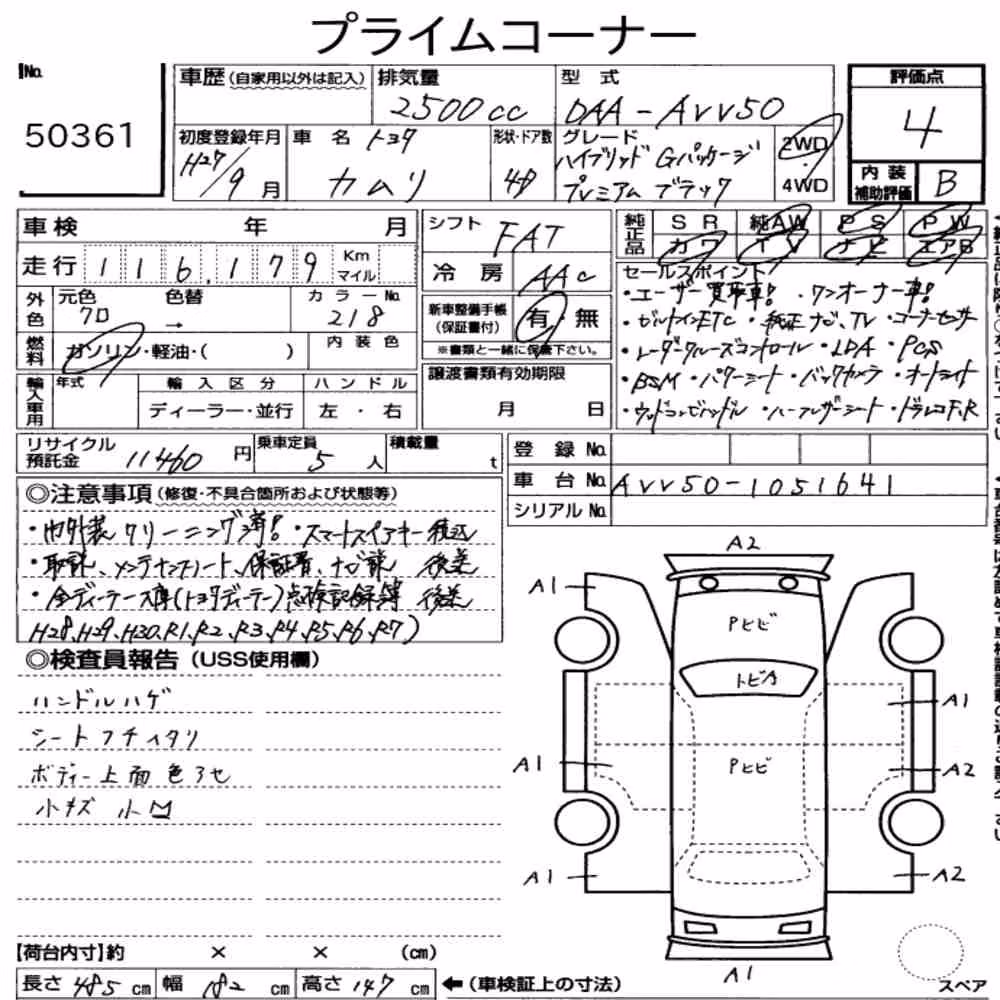 プライムコーナー
No. 50361
車歴 (自家用以外は記入) 排気量 2500cc 型式 DAA-AVV50
初度登録年月 H27/9月 車名 トヨタ カムリ 形状・ドア数 4D
グレード ハイブリッド Gパッケージ プレミアム ブラック 2WD・4WD
評価点 4
内装補助評価 B
車検 年 月
走行 116,179 Km マイル
外色 元色 クロ 色替 → カラーNo. 218
燃料 ガソリン・軽油・( ) 内装色
輸入車用 年式 輸入区分 ハンドル
ディーラー・並行 左・右
シフト FAT
冷房 AAC
新車整備手帳 (保証書付) 有・無
※書類と一緒に保管下さい。
譲渡書類有効期限
月 日
純正品 SR 純AW PS PW
カワ TV ナビ エアB
セールスポイント
・ユーザー買取車! ・ワンオーナー車!
・ビルトインETC ・純正ナビ、TV ・コーナーセンサー
・レーダークルーズコントロール ・LDA ・PCS
・BSM ・パワーシート ・バックカメラ ・オートライト
・ウッドコンビハンドル ・ハーフレザーシート ・ドラレコF,R
リサイクル預託金 11460円 乗車定員 5人 積載量 t
登録No.
車台No. AVV50-1051641
シリアルNo.
◎注意事項 (修復・不具合箇所および状態等)
・内外装クリーニング済! ・スマートスペアキー積込
・取説、メンテナンスノート、保証書、ナビ説 後送
・全ディーラー入庫(トヨタディーラー)点検記録簿 後送
H28、H29、H30、R1、R2、R3、R4、R5、R6、R7)
◎検査員報告 (USS使用欄)
ハンドルハゲ
シートフチイタリ
ボディー上面色アセ
小キズ 小凹
A2
A1
Pヒビ
トビA
A1
A1
Pヒビ
A2
A1
A2
A1
スペア
【荷台内寸】約 × × (cm)
長さ 485 cm 幅 182 cm 高さ 147 cm ←(車検証上の寸法)